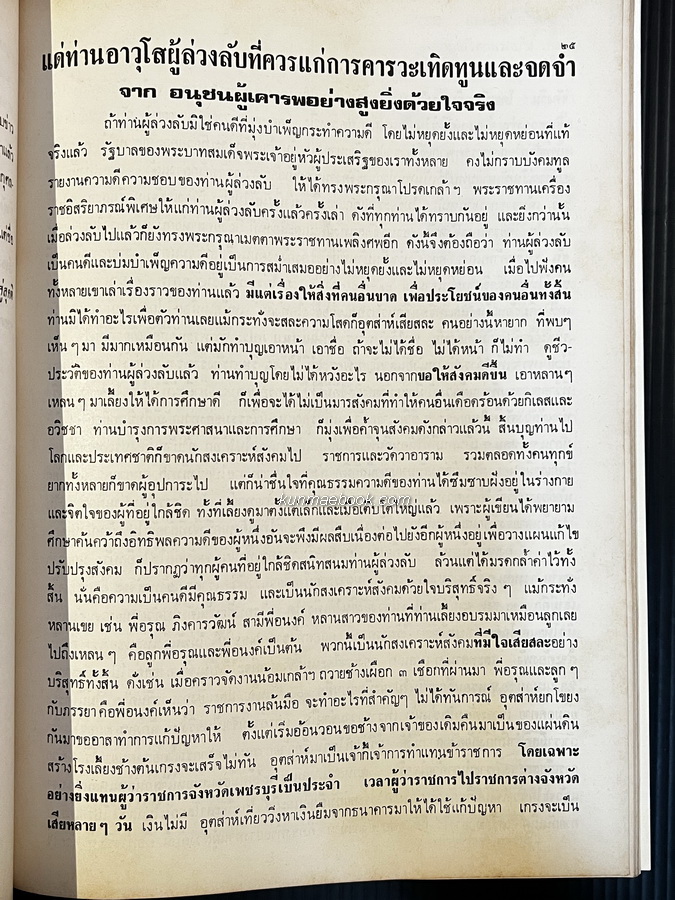 ๒๕
แด่ท่านอาวุโสผู้ล่วงลับที่ควรแก่การคารวะเทิดทูนและจดจำ
จาก อนุชนผู้เคารพอย่างสูงยิ่งด้วยใจจริง
ถ้าท่านผู้ล่วงลับมิใช่คนดีที่มุ่งบำเพ็ญกระทำความดี โดยไม่หยุดยั้งและไม่หยุดหย่อนที่แท้
จริงแล้ว รัฐบาลของพระบาทสมเด็จพระเจ้าอยู่หัวผู้ประเสริฐของเราทั้งหลาย คงไม่กราบบังคมทูล
รายงานความดีความชอบของท่านผู้ล่วงลับ ให้ได้ทรงพระกรุณาโปรดเกล้าฯ พระราชทานเครื่อง
ราชอิสริยาภรณ์พิเศษให้แก่ท่านผู้ล่วงลับครั้งแล้วครั้งเล่า ดังที่ทุกท่านได้ทราบกันอยู่ และยิ่งกว่านั้น
เมื่อล่วงลับไปแล้วก็ยังทรงพระกรุณาเมตตาพระราชทานเพลิงศพอีก ดังนี้จึงต้องถือว่า ท่านผู้ล่วงลับ
เป็นคนดีและบ่มบำเพ็ญความดีอยู่เป็นการสม่ำเสมออย่างไม่หยุดยั้งและไม่หยุดหย่อน เมื่อไปฟังคน
ทั้งหลายเขาเล่าเรื่องราวของท่านแล้ว มีแต่เรื่องให้สิ่งที่คนอื่นขาด เพื่อประโยชน์ของคนอื่นทั้งสิ้น
ท่านมิได้ทำอะไรเพื่อตัวท่านเลยแม้กระทั่งจะสละความโสดก็อุตส่าห์เสียสละ คนอย่างนี้หายาก ที่พบๆ
เห็นๆ มา มีมากเหมือนกัน แต่มักทำบุญเอาหน้า เอาชื่อ ถ้าจะไม่ได้ชื่อ ไม่ได้หน้า ก็ไม่ทำ ดูชีว-
ประวัติของท่านผู้ล่วงลับแล้ว ท่านทำบุญโดยไม่ได้หวังอะไร นอกจากขอให้สังคมดีขึ้น เอาหลานๆ
เหลนๆ มาเลี้ยงให้ได้การศึกษาดี ก็เพื่อจะได้ไม่เป็นมารสังคมที่ทำให้คนอื่นเดือดร้อนด้วยกิเลสและ
อวิชชา ท่านบำรุงการพระศาสนาและการศึกษา ก็มุ่งเพื่อค้ำจุนสังคมดังกล่าวแล้วนี้ สิ้นบุญท่านไป
โลกและประเทศชาติก็ขาดนักสังเคราะห์สังคมไป ราชการและวัดวาอาราม รวมตลอดทั้งคนทุกข์
ยากทั้งหลายก็ขาดผู้อุปการะไป แต่ก็น่าชื่นใจที่คุณธรรมความดีของท่านได้ซึมซาบฝังอยู่ในร่างกาย
kunmaebook.com
และจิตใจของผู้ที่อยู่ใกล้ชิด ทั้งที่เลี้ยงดูมาตั้งแต่เล็กและเมื่อเติบโตใหญ่แล้ว เพราะผู้เขียนได้พยายาม
ศึกษาค้นคว้าถึงอิทธิพลความดีของผู้หนึ่งอันจะพึงมีผลสืบเนื่องต่อไปยังอีกผู้หนึ่งอยู่เพื่อวางแผนแก้ไข
ปรับปรุงสังคม ก็ปรากฏว่าทุกผู้คนที่อยู่ใกล้ชิดสนิทสนมท่านผู้ล่วงลับ ล้วนแต่ได้มรดกล้ำค่าไว้ทั้ง
สิ้น นั่นคือความเป็นคนดีมีคุณธรรม และเป็นนักสงเคราะห์สังคมด้วยใจบริสุทธิ์จริงๆ แม้กระทั่ง
หลานเขย เช่น พี่อรุณ ภิงคารวัฒน์ สามีพี่อนงค์ หลานสาวของท่านที่ท่านเลี้ยงอบรมมาเหมือนลูกเลย
ไปถึงเหลนๆ คือลูกพี่อรุณและพี่อนงค์เป็นต้น พวกนี้เป็นนักสงเคราะห์สังคมที่มีใจเสียสละอย่าง
บริสุทธิ์ทั้งสิ้น ดั่งเช่น เมื่อคราวจัดงานน้อมเกล้าฯ ถวายช้างเผือก ๓ เชือกที่ผ่านมา พี่อรุณและลูกๆ
กับภรรยาคือพี่อนงค์เห็นว่า ราชการงานล้นมือ จะทำอะไรที่สำคัญๆ ไม่ได้ทันการณ์ อุตส่าห์ยกโขยง
กันมาขออาสาทำการแก้ปัญหาให้ ตั้งแต่เริ่มอ้อนวอนขอช้างจากเจ้าของเดิมคืนมาเป็นของแผ่นดิน
สร้างโรงเลี้ยงช้างต้นเกรงจะเสร็จไม่ทัน อุตส่าห์มาเป็นเจ้ากี้เจ้าการทำแทนข้าราชการ โดยเฉพาะ
อย่างยิ่งแทนผู้ว่าราชการจังหวัดเพชรบุรีเป็นประจำ เวลาผู้ว่าราชการไปราชการต่างจังหวัด
เสียหลายๆ วัน เงินไม่มี อุตส่าห์เที่ยววิ่งหาเงินยืมจากธนาคารมาให้ได้ใช้แก้ปัญหา เกรงจะเป็น